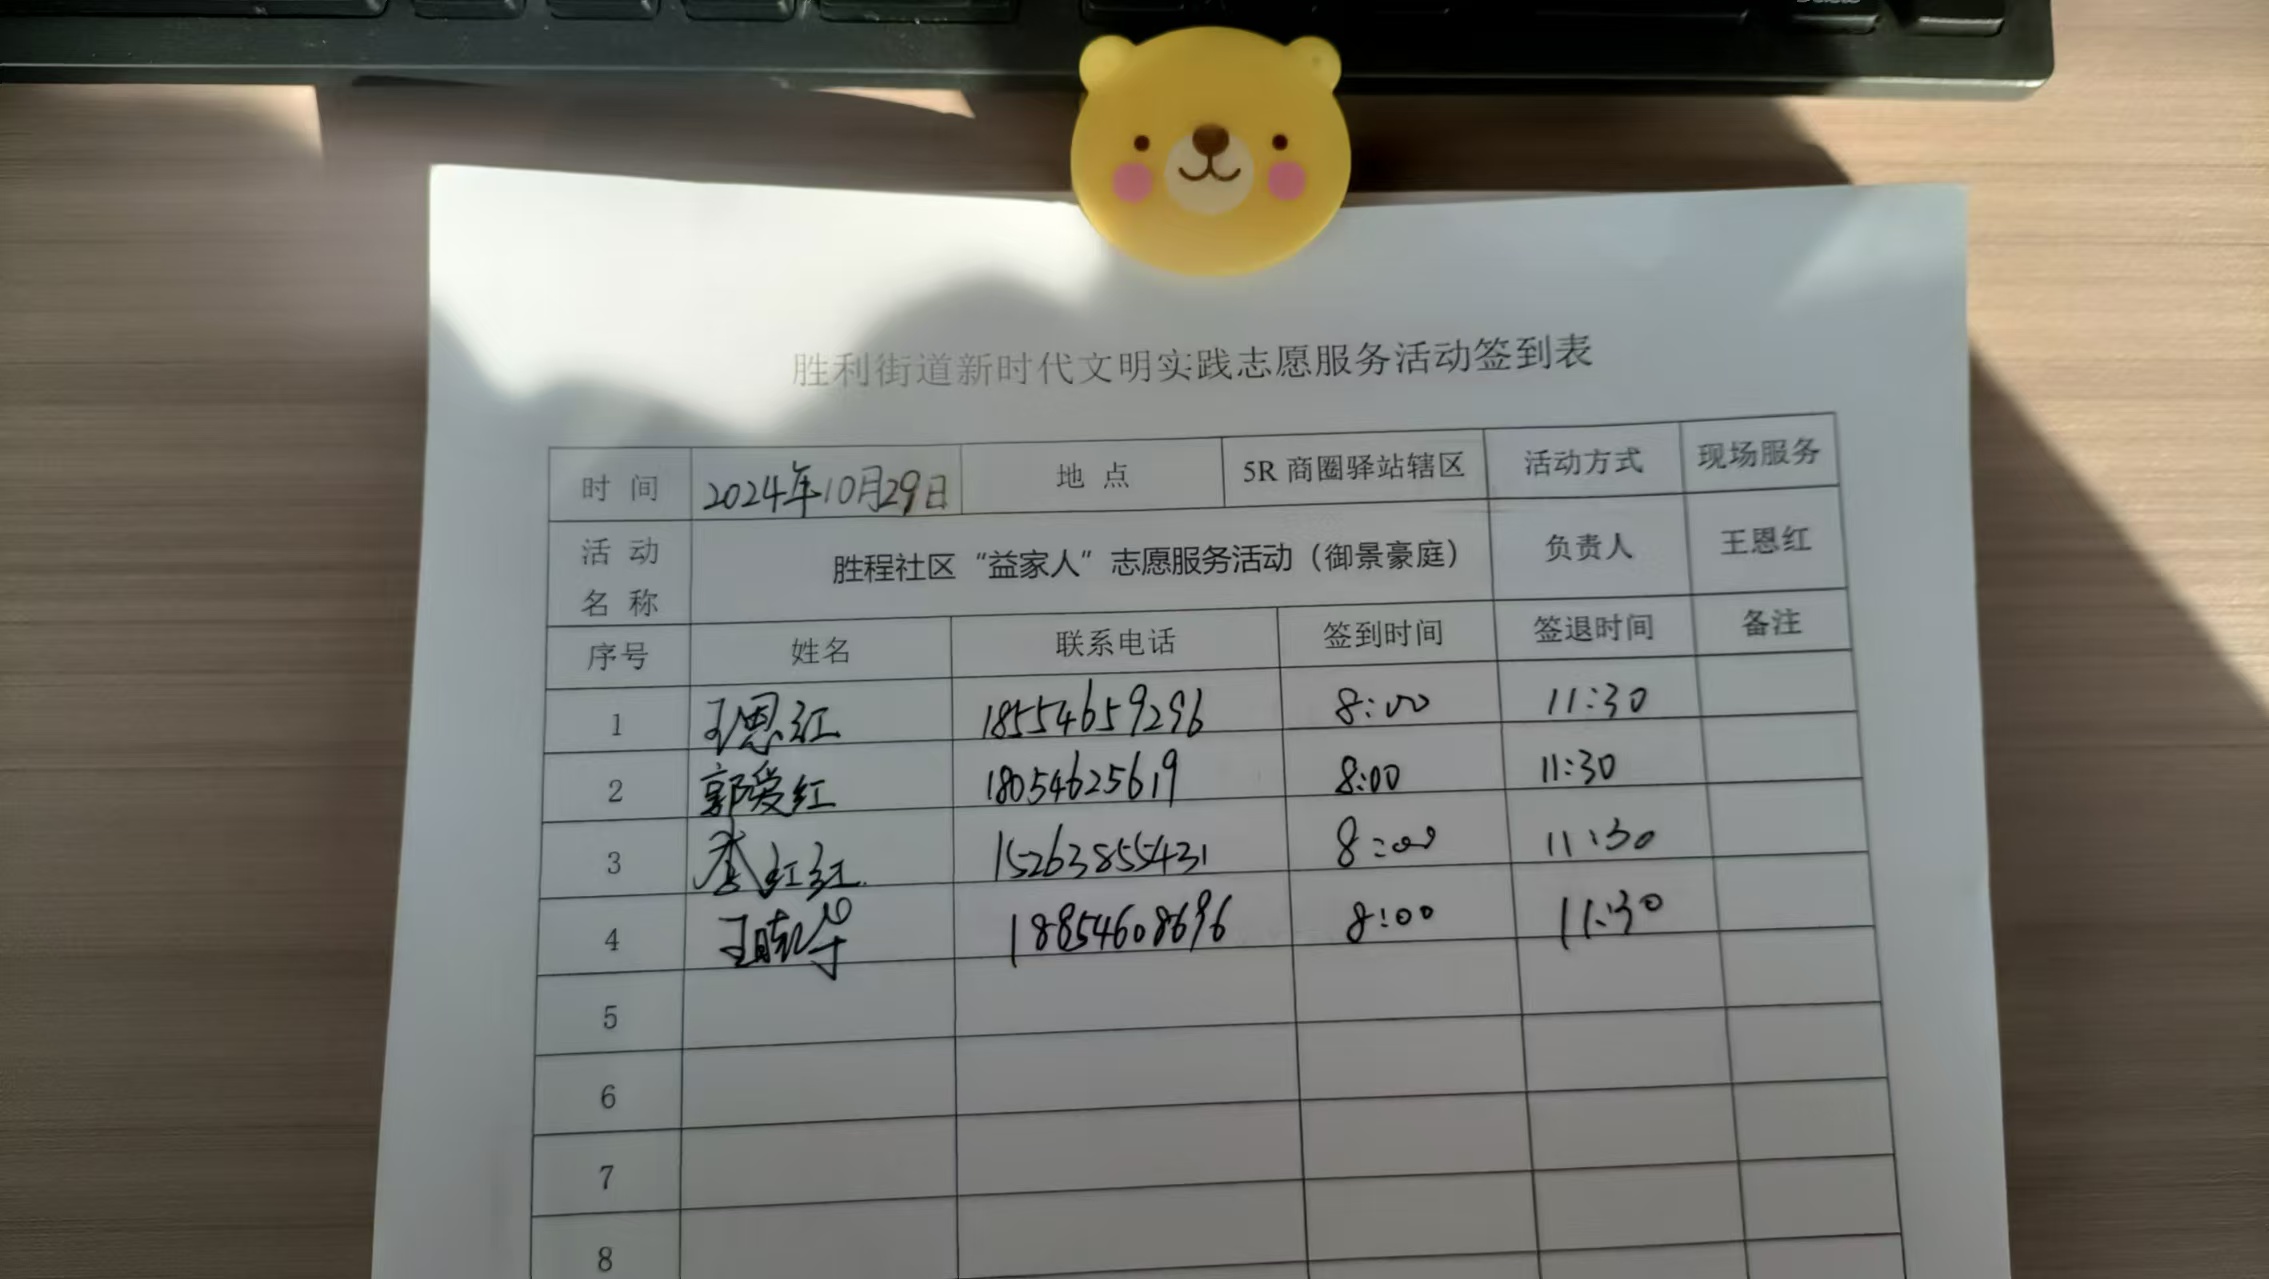 Delete
胜利街道新时代文明实践志愿服务活动签到表
时 间 2024年10月29日 地 点 5R 商圈驿站辖区 活动方式 现场服务
活 动 名 称 胜程社区“益家人”志愿服务活动（御景豪庭） 负责人 王恩红
序号 姓名 联系电话 签到时间 签退时间 备注
1 王恩红 18554659296 8:00 11:30
2 郭爱红 18054625619 8:00 11:30
3 李红红 15263855431 8:00 11:30
4 王 18854608696 8:00 11:30
5
6
7
8